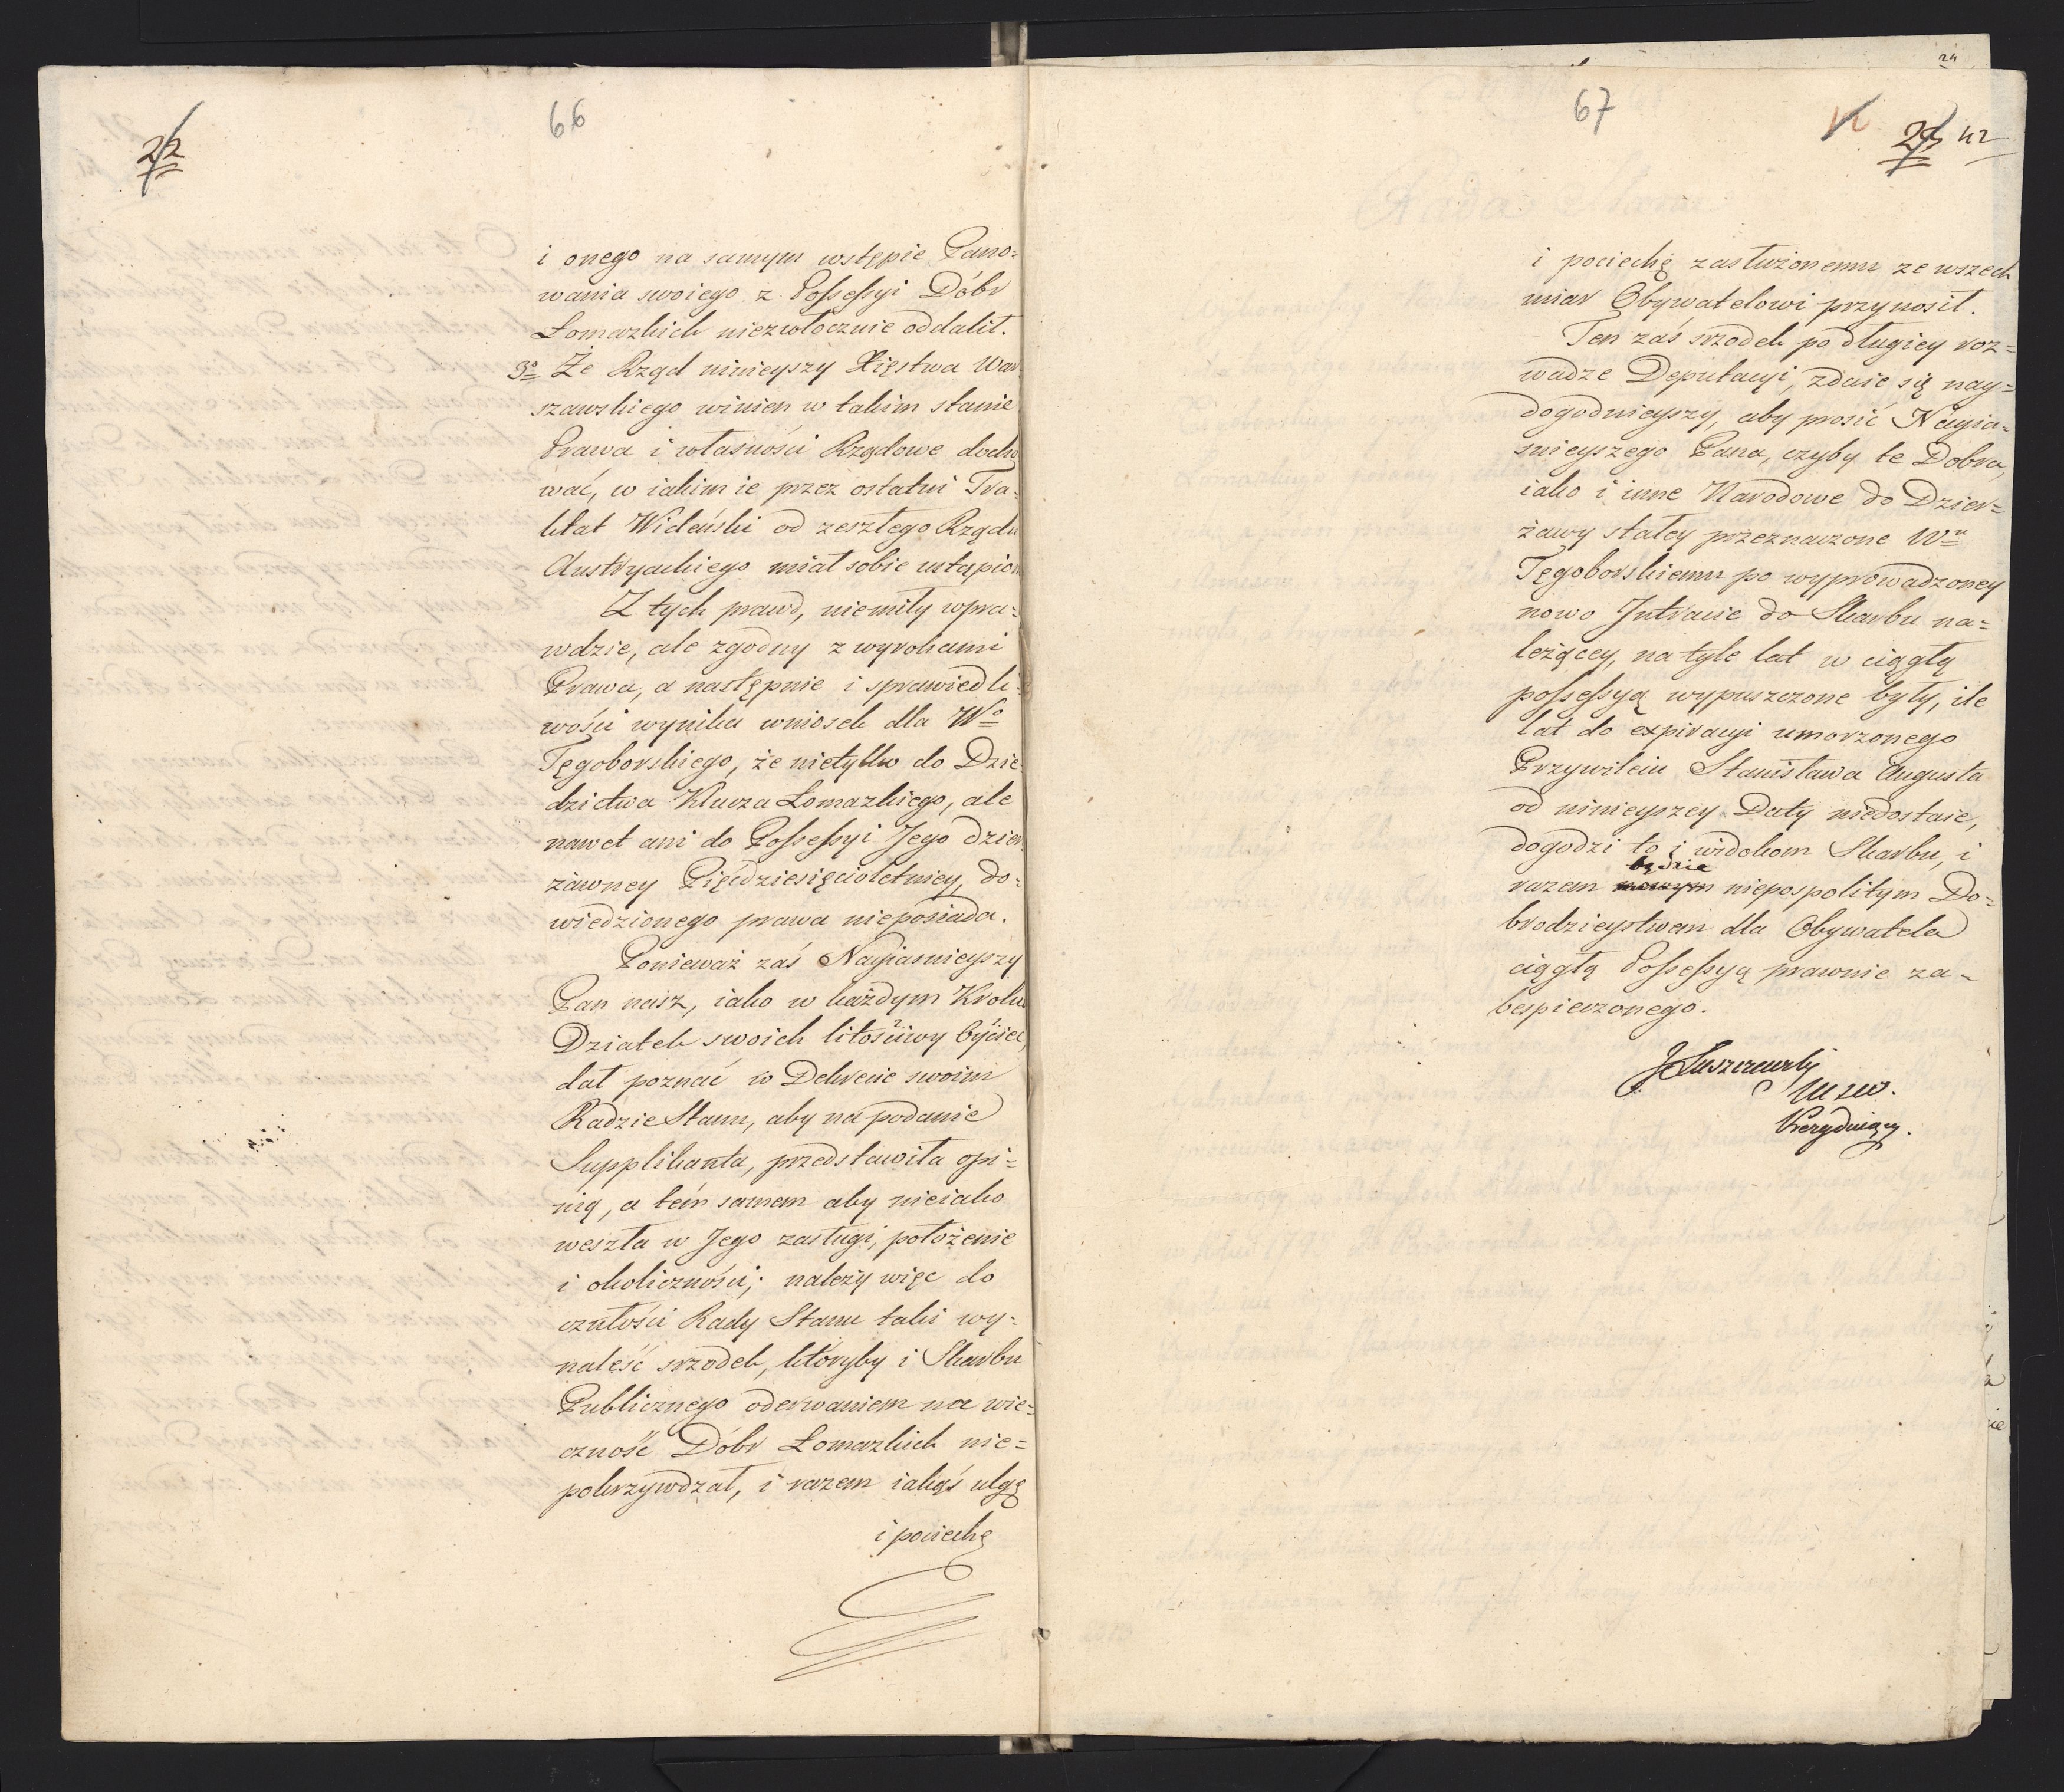 22
66
i onego na samym wstępie Pano=
wania swoiego z Possessyi Dóbr
Łomazkich niezwłocznie oddalił.
3o Że Rząd ninieyszy Xięstwa War
szawskiego winien w takim stanie
Prawa i własności Rządowe docho
wać, w iakim ie przez ostatni Tra=
ktat Wideński od zeszłego Rządu
Austryackiego miał sobie ustąpion
Z tych prawd, niemiły wpra=
wdzie, ale zgodny z wyrokami
Prawa, a następnie i sprawiedli=
wości wynika wniosek dla Wo
Tęgoborskiego, że nietylko do Dzie
dzictwa Klucza Łomazkiego, ale
nawet ani do Possessyi Jego dzier
żawney Pięćdziesięcioletniey, do=
wiedzionego prawa nieposiada.
Ponieważ zaś Nayiaśnieyszy
Pan nasz, iako w każdym Kroku
Dziatek swoich litościwy Oyciec,
dał poznać w Dekrecie swoim
Radzie Stanu, aby na podanie
Supplikanta, przedstawiła opi=
nią, a tém samem aby nieiako
weszła w Jego zasługi, położenie
i okoliczności; należy więc do
czułości Rady Stanu taki wy=
naleść srzodek, któryby i Skarbu
Publicznego oderwaniem na wie=
czność Dóbr Łomazkich nie=
pokrzywdzał, i razem iakąś ulgę
i pociechę
24
67
23 42
i pociechę zasłużonemu ze wszech
miar Obywatelowi przynosił.
Ten zaś srzodek po długiey roz=
wadze Deputacyi, zdaie się nay=
dogodnieyszy, aby prosić Nayia=
śnieyszego Pana, czyby te Dobra,
iako i inne Narodowe do Dzier=
żawy stałey przeznaczone Wu
Tęgoborskiemu po wyprowadzoney
nowo Intracie do Skarbu na=
leżącey, na tyle lat w ciągłą
possessyą wypuszczone były, ile
lat do expiracyi umorzonego
Przywileiu Stanisława Augusta
od ninieyszey Daty niedostaie,
dogodzi to i widokom Skarbu, i
będzie
razem niepospolitym Do=
brodzieystwem dla Obywatela
ciągłą Possessyą prawnie za=
bespieczonego.
J Łuszczewski
M S W.
Prezyduiący.